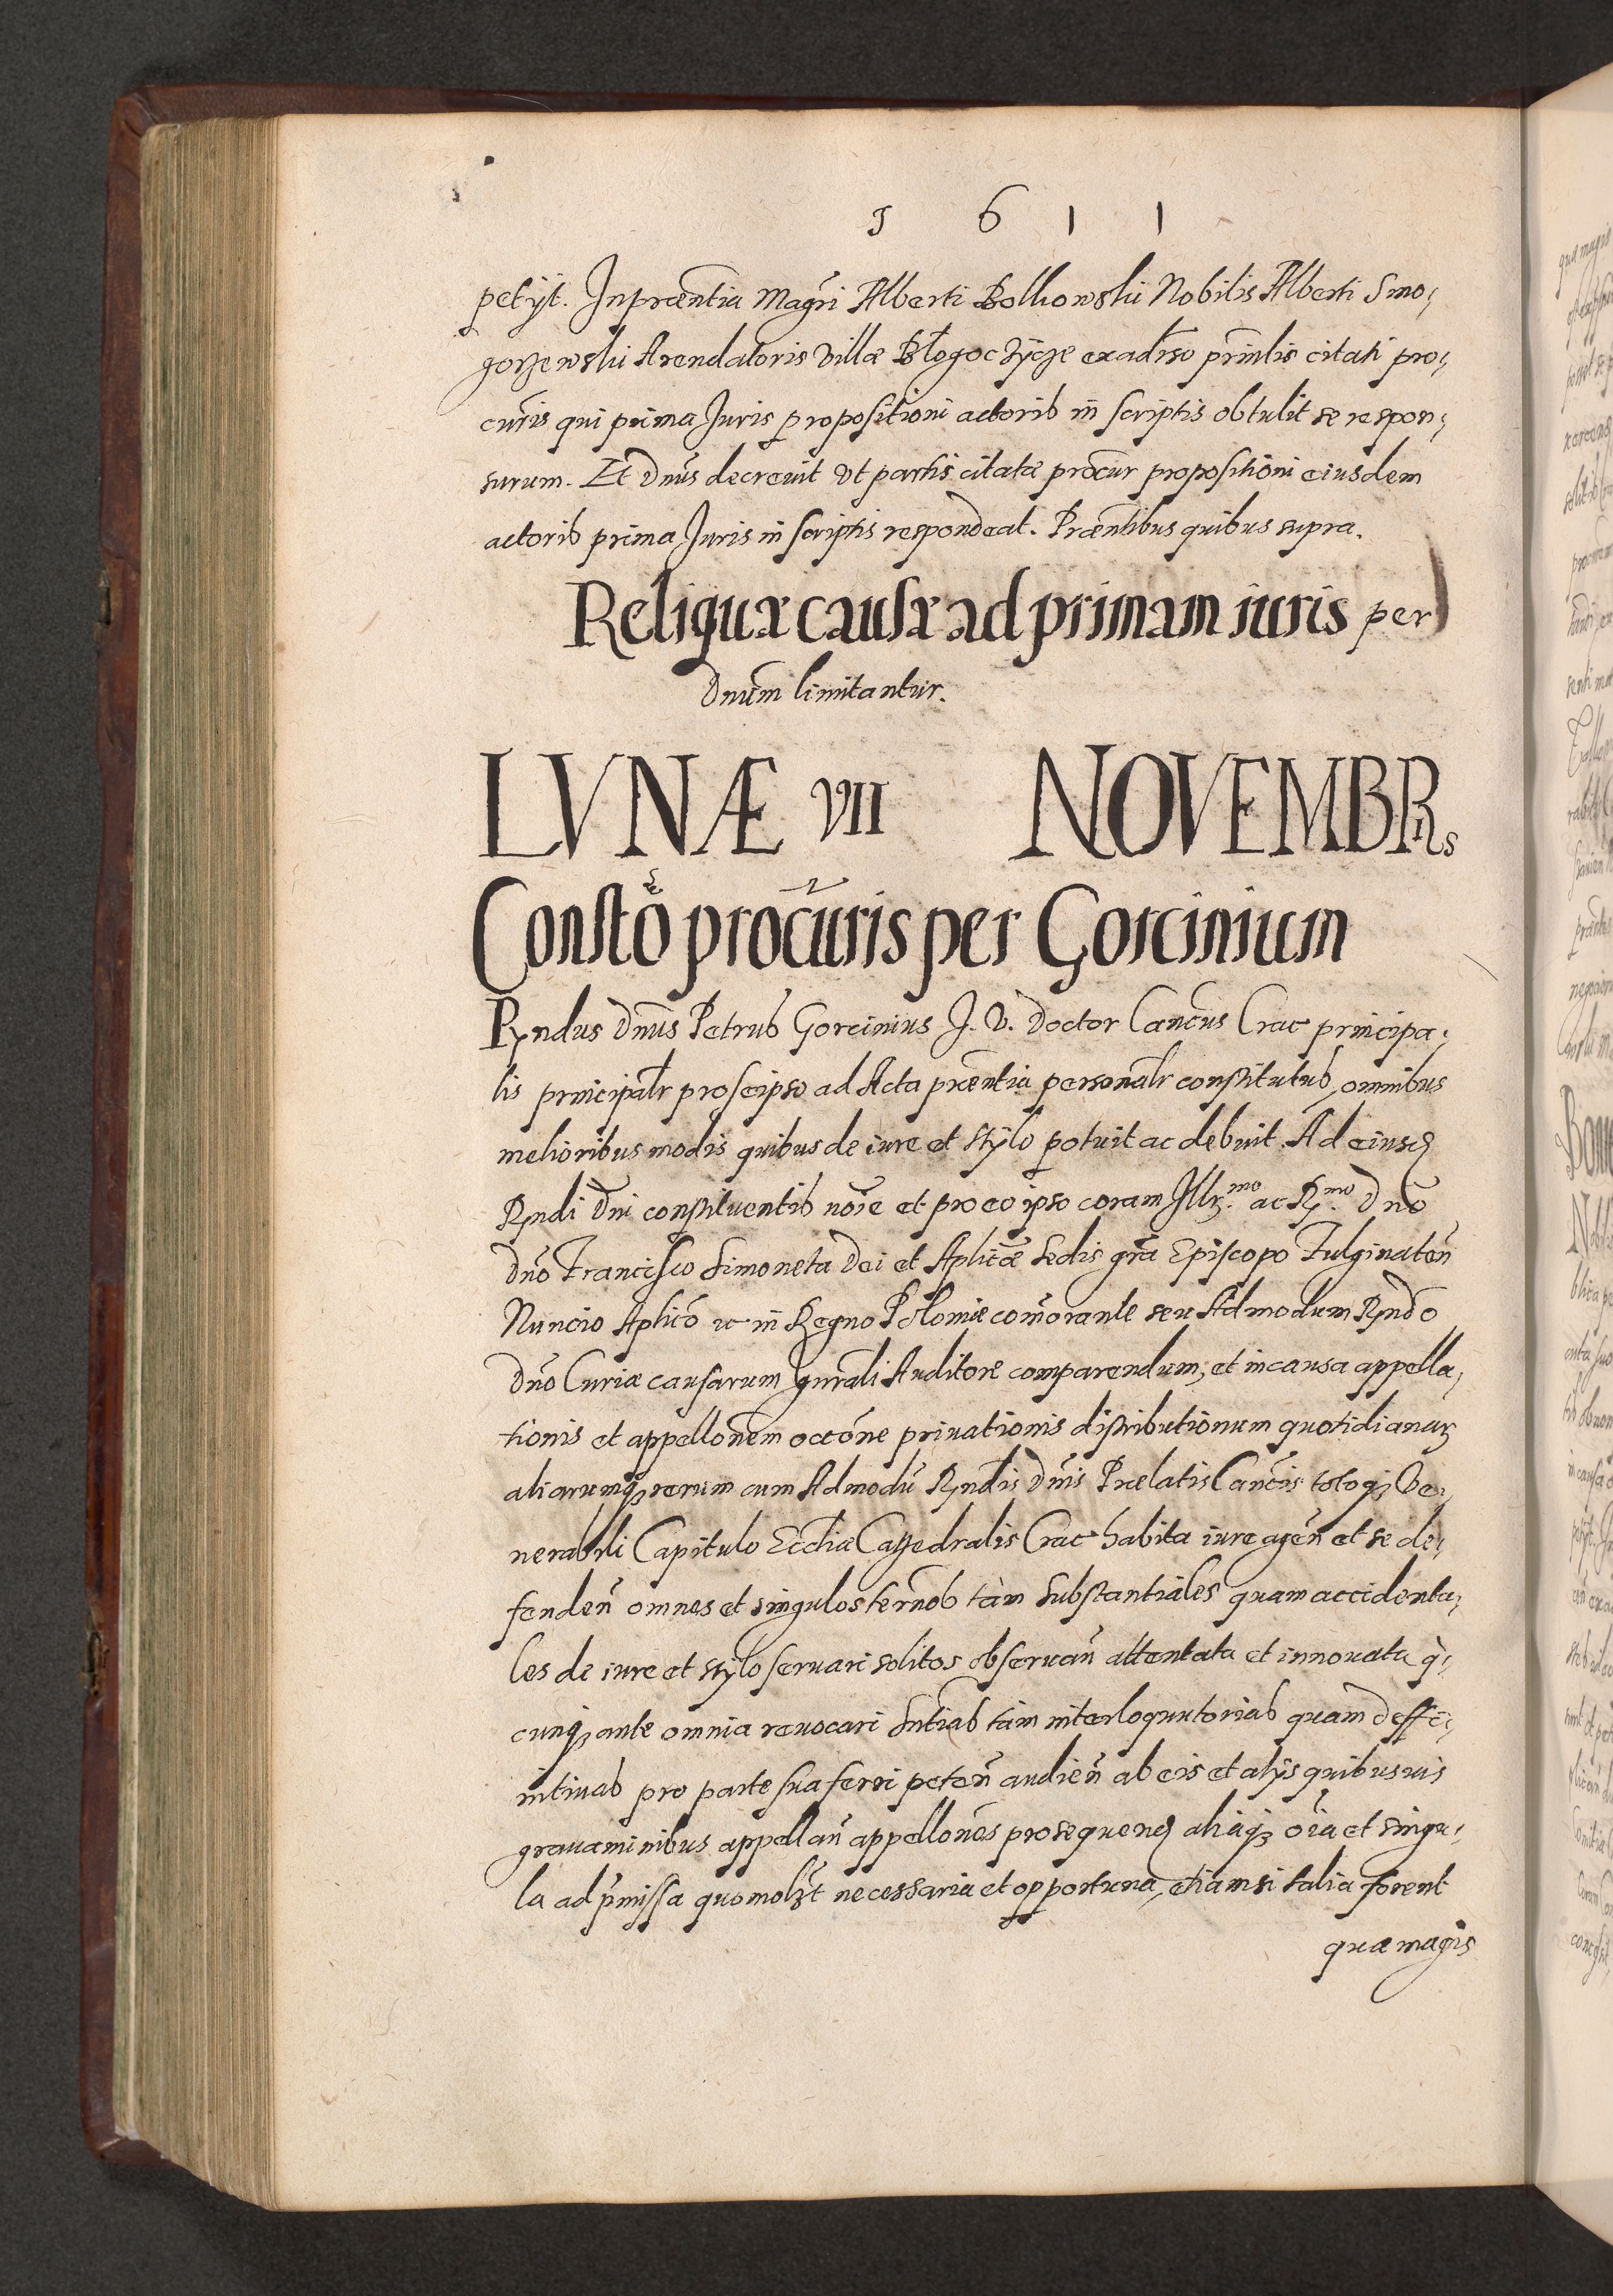 1 6 1 1
petijt. In præntia Magri Alberti Bolhowski Nobilis Alberti Smo,
gorzewski Arendatoris villæ Błogoczÿcze ex adiso prinlis citati pro,
curis qui prima Juris propositioni actoris in scriptis obtulit se respon,
surum. Et Dnus decrevit vt partis citatæ procur propositioni eiusdem
actoris prima Juris in scriptis respondeat. Præntibus quibus supra.
Reliquæ causæ ad primam iuris per
Dnum limitantur.
LVNÆ VII NOVEMBRis
Constõ procuris per Gorcinium
Rndus Dnus Petrus Gorcinius J. V. Doctor Cancus Crac principa,
lis principalr pro se ipso ad Acta præntia personalr constitutus, omnibus
melioribus modis quibus de iure et stylo potuit ac debuit. Ad eiusd
Rndi Dni constituentis noïe et pro eo ipso coram Illr.mo ac R.mo Dno
Dno Francisco Simoneta Dei et Aplicæ Sedis gra Episcopo Fulginaten
Nuncio Aplico ac in Regno Poloniæ comorante seu Admodum Rndo
Dno Curiæ causarum gnrali Auditore comparendum, et in causa appella,
tionis et appellonem occone privationis distributionum quotidianarz
aliarumqz rerum cum Admodu Rndis Dnis Prælatis Cancis totoqz Ve,
nerabili Capitulo Eccliæ Cathedralis Crac habita iure agen et se de,
fenden omnes et singulos ternos tàm substantiales quam accidenta,
les de iure et stylo servari solitos observan attentata et innovata q̀,
cunqz ante omnia revocari sntias tàm interloquutorias quam deffi,
nitivas pro parte sua ferri peten audien ab eis et alijs quibusvis
gravaminibus appellan appellones prosequend aliaqz oïa et singu,
la ad pmissa quomolzt necessaria et opportuna, etiamsi talia forent
quæ magis